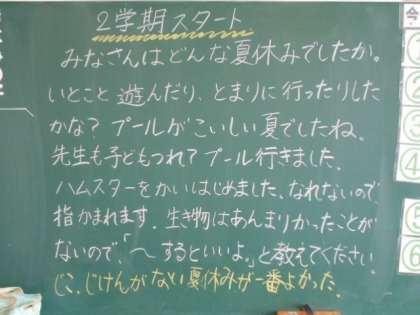 2学期スタート
みなさんはどんな夏休みでしたか。
いとこと遊んだり、とまりに行ったりした
かな？プールがこいしい夏でしたね。
先生も子どもつれてプール行きました。
ハムスターをかいはじめました。なれないので、
指かまれます。生き物はあんまりかったことが
ないので、〜するといいよ。と教えてください
じこ、じけんがない夏休みが一番よかった。
①
②
③
④
⑤
⑥